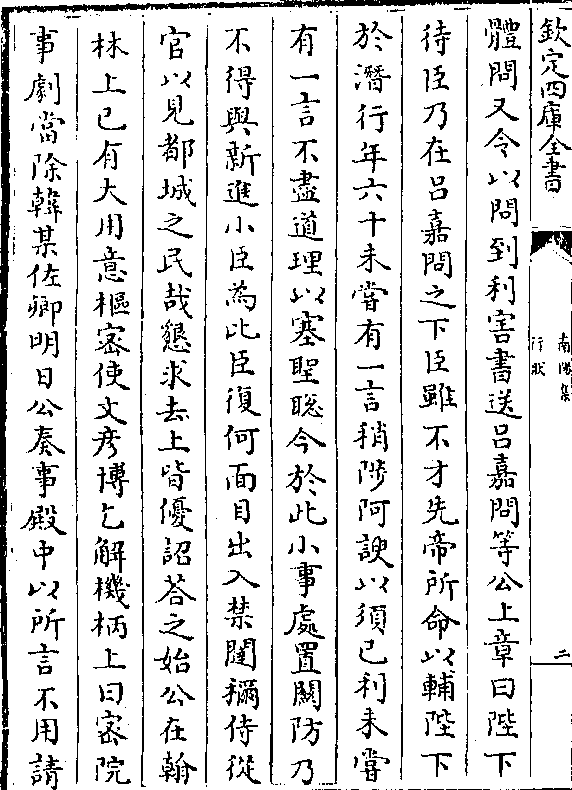 欽定四庫全書
南陽集
行狀
二
體問又令以問到利害書送吕嘉問等公上章曰陛下
待臣乃在吕嘉問之下臣雖不才先帝所命以輔陛下
於潛行年六十未嘗有一言稍陟阿諛以須已利未嘗
有一言不盡道理以塞聖聦今於此小事處置關防乃
不得與新進小臣為此臣復何面目出入禁闥稱侍從
官以見都城之民哉懇求去上皆優詔荅之始公在翰
林上已有大用意樞宻使文彦博乞解機柄上曰宻院
事劇當除韓某佐卿明日公奏事殿中以所言不用請